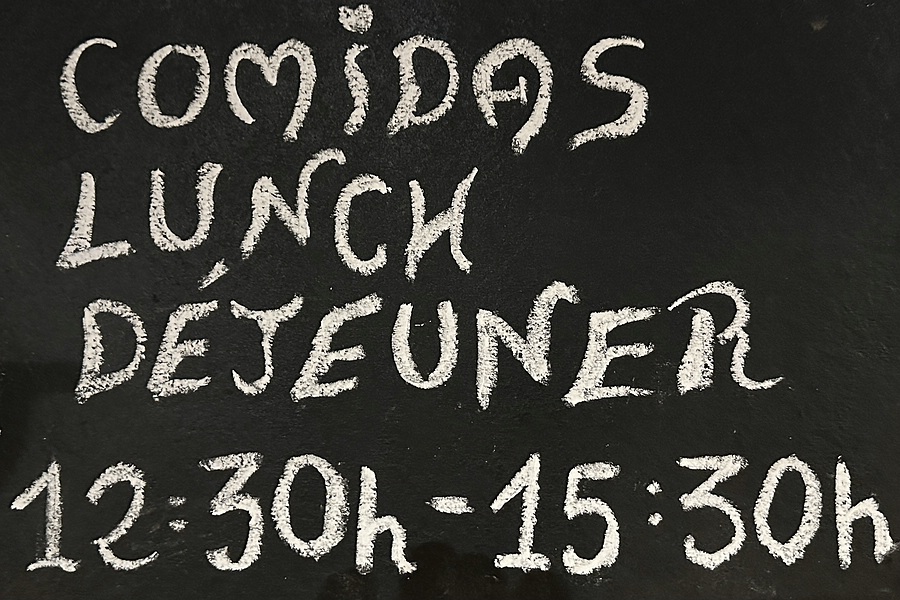 COMiDAS
LUNCH
DÉJEUNER
12:30h-15:30h